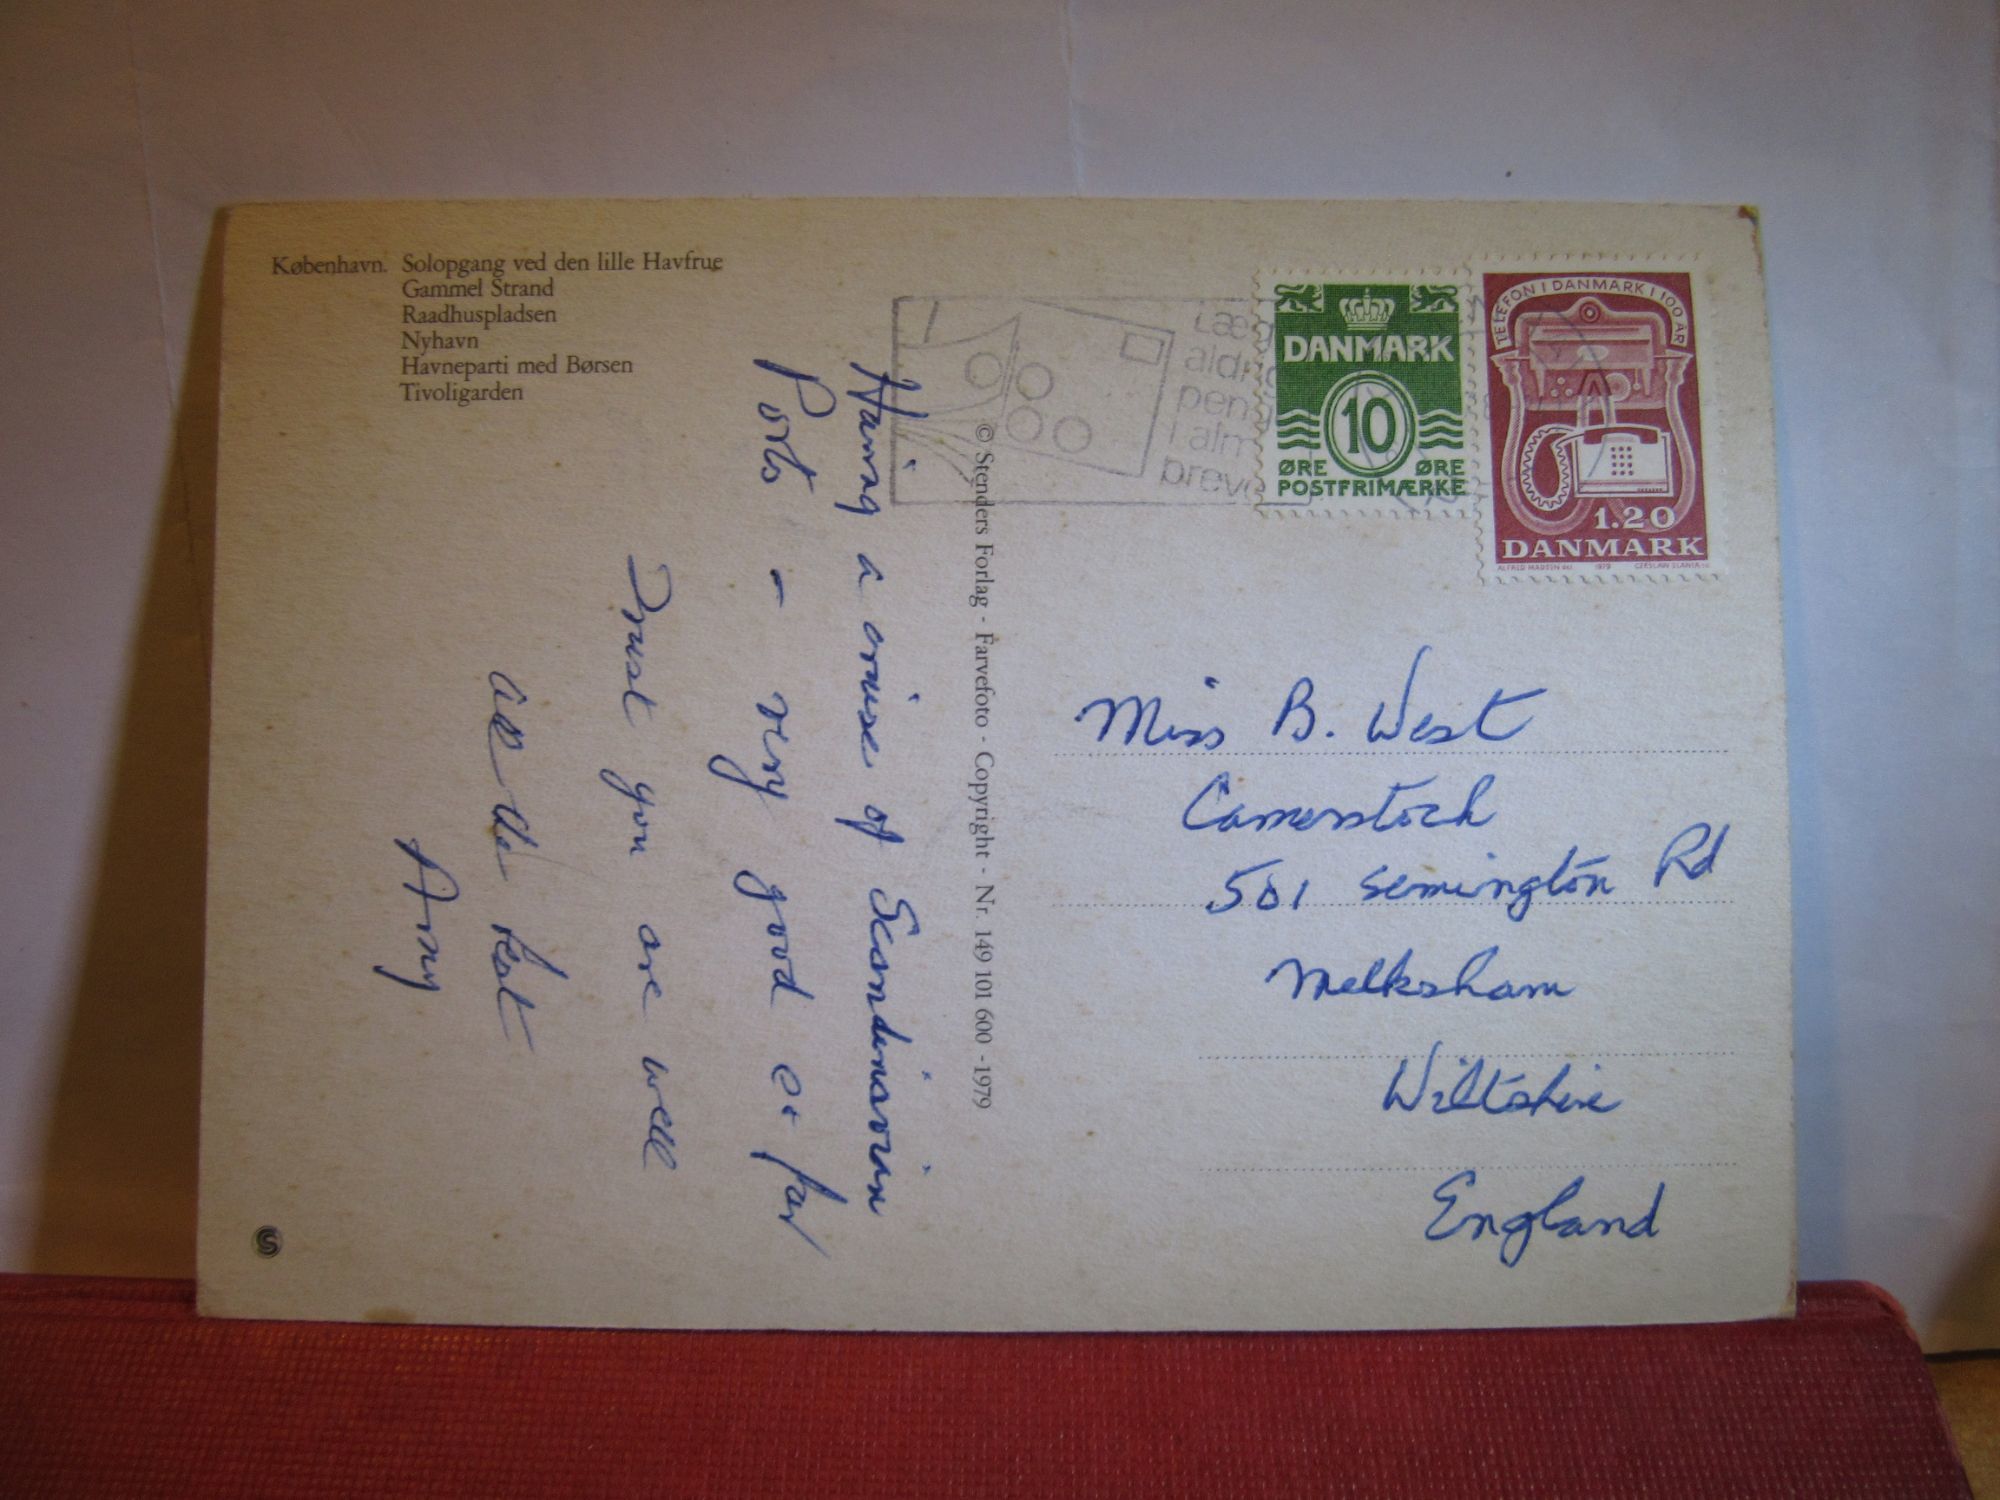 København. Solopgang ved den lille Havfrue
Gammel Strand
Raadhuspladsen
Nyhavn
Havneparti med Børsen
Tivoligarden
Having a cruise of Scandinavian
Ports - very good so far
Trust you are well
All the best
Amy
© Stenders Forlag - Farvefoto - Copyright - Nr. 149 101 600 - 1979
Læg
aldrig
peng
i alm
breve
DANMARK
10
ØRE ØRE
POSTFRIMÆRKE
TELEFON I DANMARK I 100 ÅR
1.20
DANMARK
ALFRED MADSEN del. 1979 CZESLAW SLANIA sc.
Miss B. West
501 Semington Rd
Melksham
Wiltshire
England
S